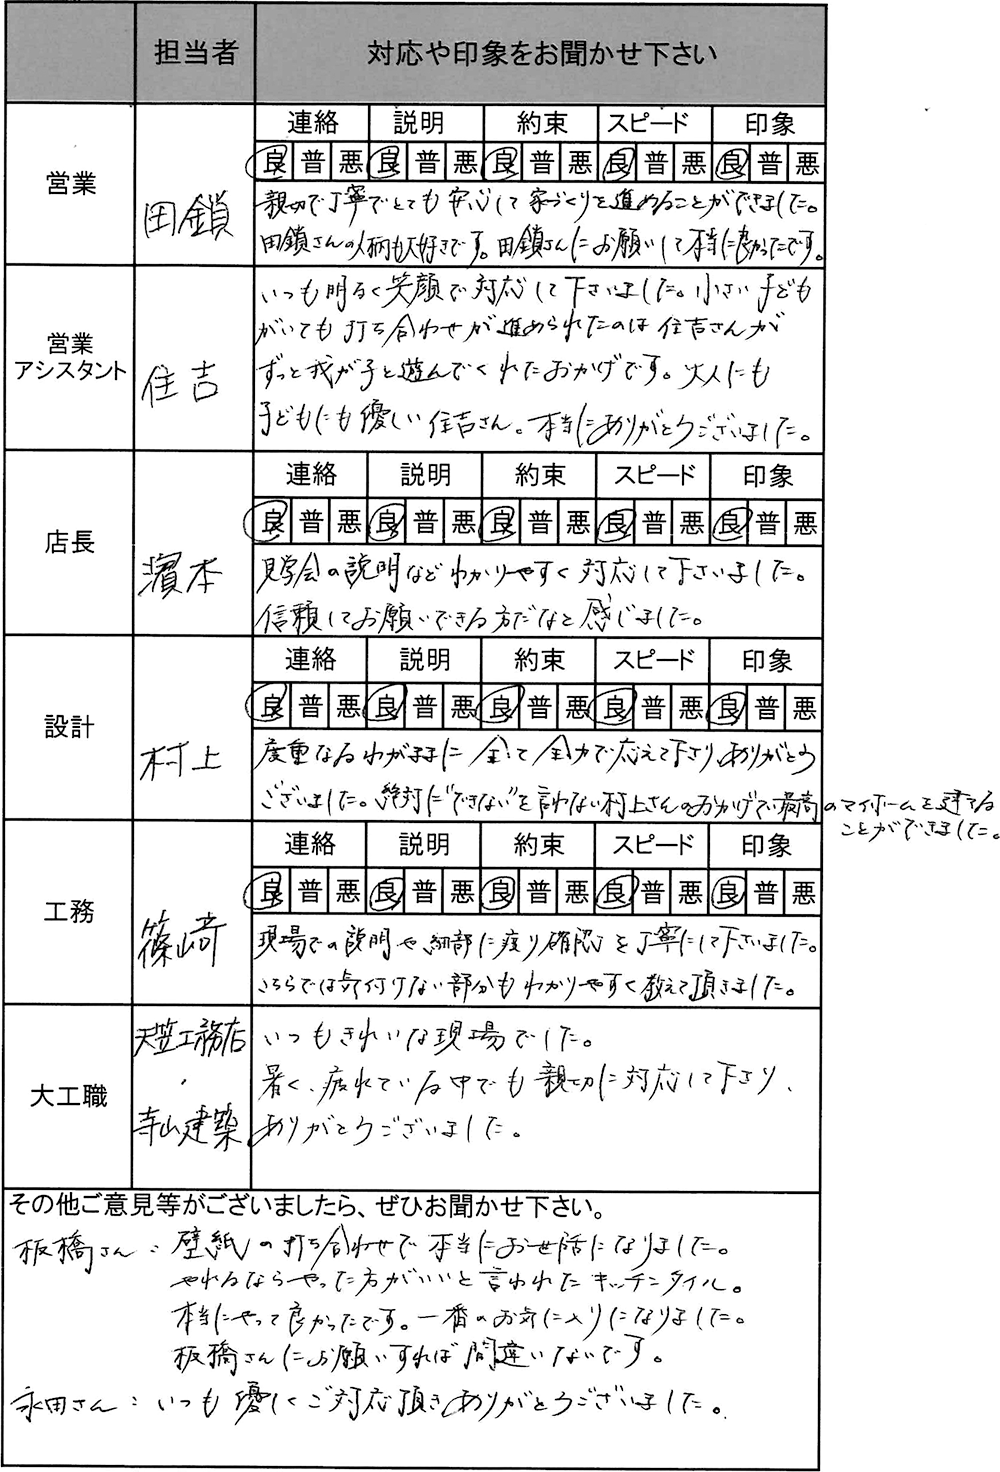 担当者 対応や印象をお聞かせ下さい
営業 田鎖
連絡 説明 約束 スピード 印象
良 普 悪 良 普 悪 良 普 悪 良 普 悪 良 普 悪
親切で丁寧でとても安心して家づくりを進めることができました。
田鎖さんの人柄も大好きです。田鎖さんにお願いして本当に良かったです。
営業
アシスタント
住吉
いつも明るく笑顔で対応して下さいました。小さい子ども
がいても打ち合わせが進められたのは住吉さんが
ずっと我が子と遊んでくれたおかげです。大人にも
子どもにも優しい住吉さん。本当にありがとうございました。
店長 濱本
連絡 説明 約束 スピード 印象
良 普 悪 良 普 悪 良 普 悪 良 普 悪 良 普 悪
見学会の説明などわかりやすく対応して下さいました。
信頼してお願いできる方だなと感じました。
設計 村上
連絡 説明 約束 スピード 印象
良 普 悪 良 普 悪 良 普 悪 良 普 悪 良 普 悪
度重なるわがままに全て全力で応えて下さり、ありがとう
ございました。絶対に"できない"を言わない村上さんのおかげで最高のマイホームを建てる
ことができました。
工務 篠崎
連絡 説明 約束 スピード 印象
良 普 悪 良 普 悪 良 普 悪 良 普 悪 良 普 悪
現場での説明や細部に渡り確認を丁寧にして下さいました。
こちらでは気付けない部分もわかりやすく教えて頂きました。
大工職
天笠工務店
・
寺山建築
いつもきれいな現場でした。
暑く、疲れている中でも親切に対応して下さり、
ありがとうございました。
その他ご意見等がございましたら、ぜひお聞かせ下さい。
板橋さん：壁紙の打ち合わせで本当にお世話になりました。
やれるならやった方がいいと言われたキッチンタイル。
本当にやって良かったです。一番のお気に入りになりました。
板橋さんにお願いすれば間違いないです。
永田さん：いつも優しくご対応頂きありがとうございました。